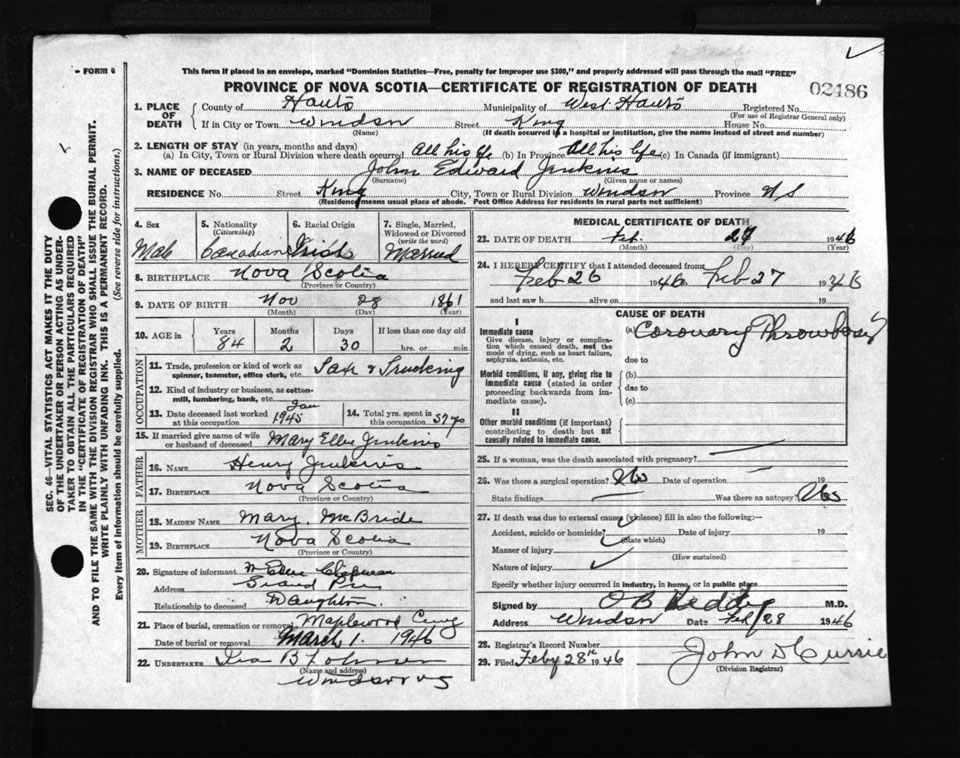 - FORM 6
This form if placed in an envelope, marked "Dominion Statistics—Free, penalty for improper use $300," and properly addressed will pass through the mail "FREE"
PROVINCE OF NOVA SCOTIA—CERTIFICATE OF REGISTRATION OF DEATH
02486
1. PLACE OF DEATH
County of Hants Municipality of West Hants Registered No.
(For use of Registrar General only)
If in City or Town Windsor Street King House No.
(Name) (If death occurred in a hospital or institution, give the name instead of street and number)
2. LENGTH OF STAY (in years, months and days)
(a) In City, Town or Rural Division where death occurred All his life (b) In Province All his life (c) In Canada (if immigrant)
3. NAME OF DECEASED John Edward Jenkins
(Surname) (Given name or names)
RESIDENCE No. Street King City, Town or Rural Division Windsor Province N S
(Residence means usual place of abode. Post Office Address for residents in rural parts not sufficient)
4. Sex Male
5. Nationality (Citizenship) Canadian
6. Racial Origin Irish
7. Single, Married, Widowed or Divorced (write the word) Married
8. BIRTHPLACE Nova Scotia
(Province or Country)
9. DATE OF BIRTH Nov 28 1861
(Month) (Day) (Year)
10. AGE in Years Months Days If less than one day old
84 2 30 hrs. or min.
OCCUPATION
11. Trade, profession or kind of work as spinner, teamster, office clerk, etc. Trucking
12. Kind of industry or business, as cotton-mill, lumbering, bank, etc.
13. Date deceased last worked at this occupation Jan 1945
14. Total yrs. spent in this occupation
15. If married give name of wife or husband of deceased Mary Ellen Jenkins
FATHER
16. NAME Henry Jenkins
17. BIRTHPLACE Nova Scotia
(Province or Country)
MOTHER
18. MAIDEN NAME Mary McBride
19. BIRTHPLACE Nova Scotia
(Province or Country)
20. Signature of informant Chapman
Address Grand Pre
Relationship to deceased Daughter
21. Place of burial, cremation or removal Maplewood Cem
Date of burial or removal March 1. 1946
22. UNDERTAKER Ira B
(Name and address)
Windsor NS
MEDICAL CERTIFICATE OF DEATH
23. DATE OF DEATH Feb. 27 1946
(Month) (Day) (Year)
24. I HEREBY CERTIFY that I attended deceased from
Feb 26 1946 Feb 27 1946
and last saw h alive on 19
CAUSE OF DEATH
I
Immediate cause
Give disease, injury or complication which caused death, not the mode of dying, such as heart failure, asphyxia, asthenia, etc.
(a) Coronary Thrombosis
due to
Morbid conditions, if any, giving rise to immediate cause (stated in order proceeding backwards from immediate cause).
(b)
due to
(c)
II
Other morbid conditions (if important) contributing to death but not causally related to immediate cause.
25. If a woman, was the death associated with pregnancy?
26. Was there a surgical operation? No Date of operation 19
State findings Was there an autopsy? No
27. If death was due to external causes (violence) fill in also the following:—
Accident, suicide or homicide? Date of injury 19
(State which)
Manner of injury
(How sustained)
Nature of injury
Specify whether injury occurred in industry, in home, or in public place
Signed by O B Keddy M.D.
Address Windsor Date Feb/28 1946
28. Registrar's Record Number
29. Filed Feby 28th 1946 John D Currie
(Division Registrar)
SEC. 46—VITAL STATISTICS ACT MAKES IT THE DUTY
OF THE UNDERTAKER OR PERSON ACTING AS UNDER-
TAKER TO OBTAIN ALL THE PARTICULARS REQUIRED
IN THE "CERTIFICATE OF REGISTRATION OF DEATH"
AND TO FILE THE SAME WITH THE DIVISION REGISTRAR WHO SHALL ISSUE THE BURIAL PERMIT.
WRITE PLAINLY WITH UNFADING INK. THIS IS A PERMANENT RECORD.
Every item of information should be carefully supplied. (See reverse side for instructions.)